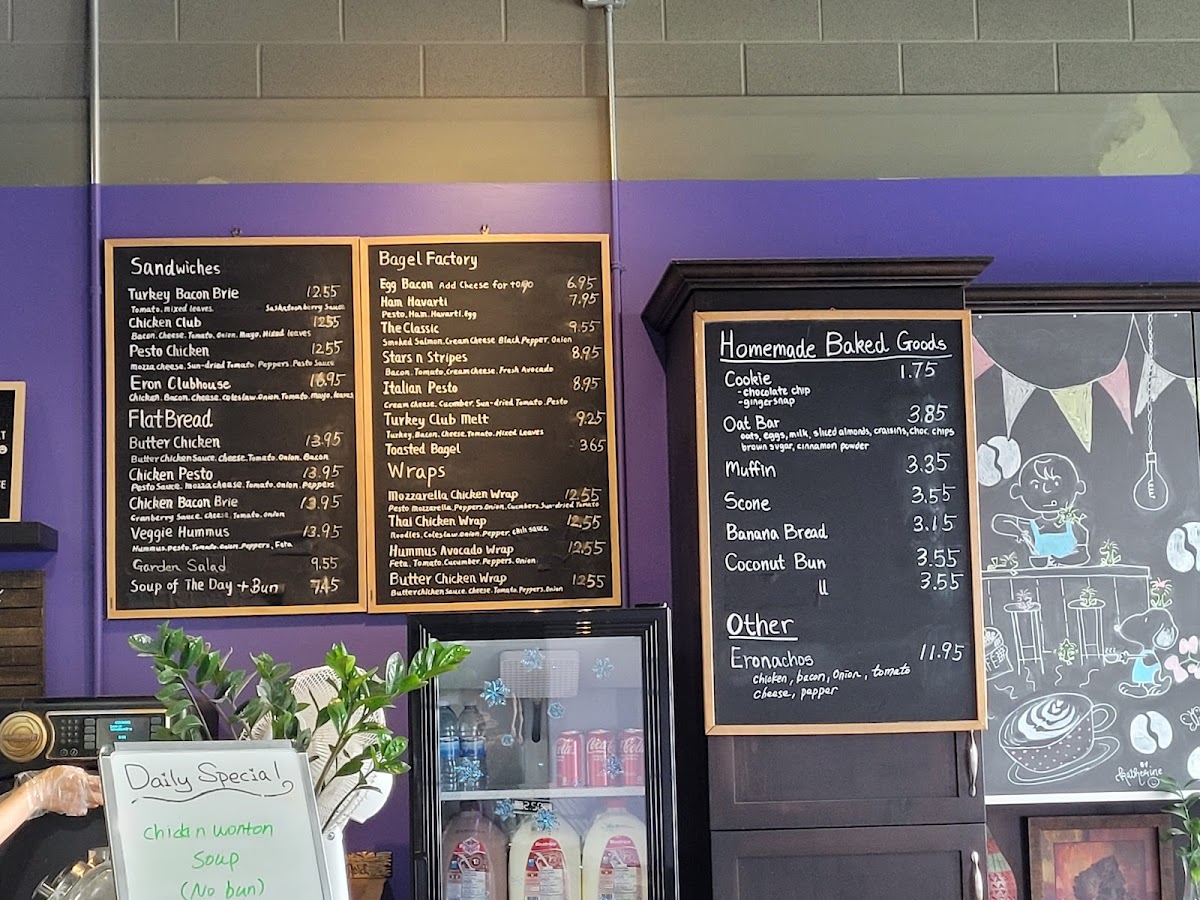 Sandwiches
Turkey Bacon Brie 12.55
Tomato, mixed leaves. Saskatoonberry Sauce
Chicken Club 12.55
Bacon. Cheese. Tomato. Onion. Mayo. Mixed leaves
Pesto Chicken 12.55
mozza cheese. Sun-dried Tomato. Peppers. Pesto Sauce
Eron Clubhouse 16.95
Chicken. Bacon. cheese. coleslaw. Onion. Tomato. Mayo. leaves
FlatBread
Butter Chicken 13.95
Butter Chicken Sauce. cheese. Tomato. Onion. Bacon
Chicken Pesto 13.95
Pesto Sauce. mozza cheese. Tomato. onion. Peppers
Chicken Bacon Brie 13.95
Cranberry Sauce. cheese. Tomato. onion
Veggie Hummus 13.95
Hummus. Pesto. Tomato. Onion. Peppers, Feta
Garden Salad 9.55
Soup of The Day + Bun 7.45
Bagel Factory
Egg Bacon Add Cheese for +0.90 6.95
Ham Havarti 7.95
Pesto. Ham. Havarti. Egg
The Classic 9.55
Smoked Salmon. Cream Cheese Black Pepper. Onion
Stars n Stripes 8.95
Bacon. Tomato. Cream Cheese. Fresh Avocado
Italian Pesto 8.95
Cream Cheese. Cucumber. Sun-dried Tomato. Pesto
Turkey Club Melt 9.25
Turkey. Bacon. Cheese. Tomato. Mixed Leaves
Toasted Bagel 3.65
Wraps
Mozzarella Chicken Wrap 12.55
Pesto Mozzarella. Peppers. Onion. Cucmbers. Sun-dried Tomato
Thai Chicken Wrap 12.55
Noodles. Coleslaw. Onion. Pepper. chili sauce
Hummus Avocado Wrap 12.55
Feta. Tomato. Cucumber. Peppers. Onion
Butter Chicken Wrap 12.55
Butter Chicken Sauce. Cheese. Tomato. Peppers. Onion
Homemade Baked Goods
Cookie 1.75
- chocolate chip
- gingersnap
Oat Bar 3.85
oats, eggs, milk, sliced almonds, craisins, choc. chips
brown sugar, cinnamon powder
Muffin 3.35
Scone 3.55
Banana Bread 3.15
Coconut Bun 3.55
3.55
Other
Eronachos 11.95
chicken, bacon, onion, tomato
cheese, pepper
Daily Special
chicken wonton
Soup
(No bun)
Coca-Cola
BY
Katherine